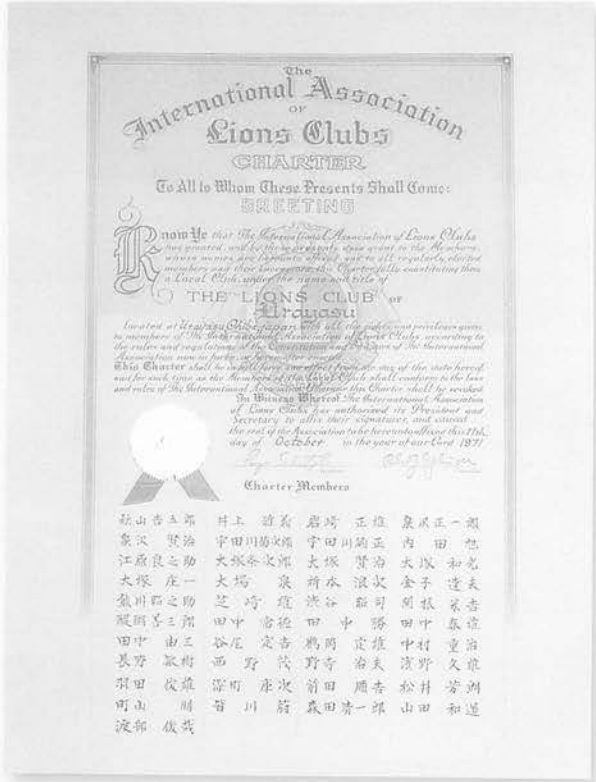 The
International Association
OF
Lions Clubs
CHARTER
To All to Whom These Presents Shall Come:
GREETING
Know Ye that The International Association of Lions Clubs
has granted, and by these presents does grant to the Members,
whose names are hereunto affixed, and to all regularly elected
members and their successors, this Charter, fully constituting them
a Local Club, under the name and title of
THE LIONS CLUB OF
Urayasu
located at Urayasu Chiba, Japan with all the rights and privileges given
to members of The International Association of Lions Clubs, according to
the rules and regulations of the Constitution and By-Laws of The International
Association now in force, or hereinafter enacted.
This Charter shall be in full force and effect from the day of the date hereof,
and for such time as the Members of the Local Club shall conform to the laws
and rules of The International Association, this Charter shall be revoked
In Witness Whereof The International Association
of Lions Clubs has authorized its President and
Secretary to affix their signatures, and caused
the seal of the Association to be hereunto affixed this
day of October in the year of our Lord 1971
Charter Members
秋山吉五郎 井上 岩崎 正雄 正一郎
泉沢 賢治 宇田川菊次郎 宇田川 正 内田
江原良之助 大塚 次郎 大塚 賢治 大塚 和光
大塚 庄一 大場 泉 金子 達夫
之助 芝崎 渋谷 司 関根 栄吉
三郎 田中 田中 勝 田中 春雄
田中 由三 谷尾 定吉 鵜岡 定雄 中村 重治
長野 敏樹 西野 茂 野寺 治夫 濱野 久雄
羽田 俊雄 深町 康次 前田 順吉 松井 芳
町山 皆川 森田 一郎 山田 和
渡部 俊哉